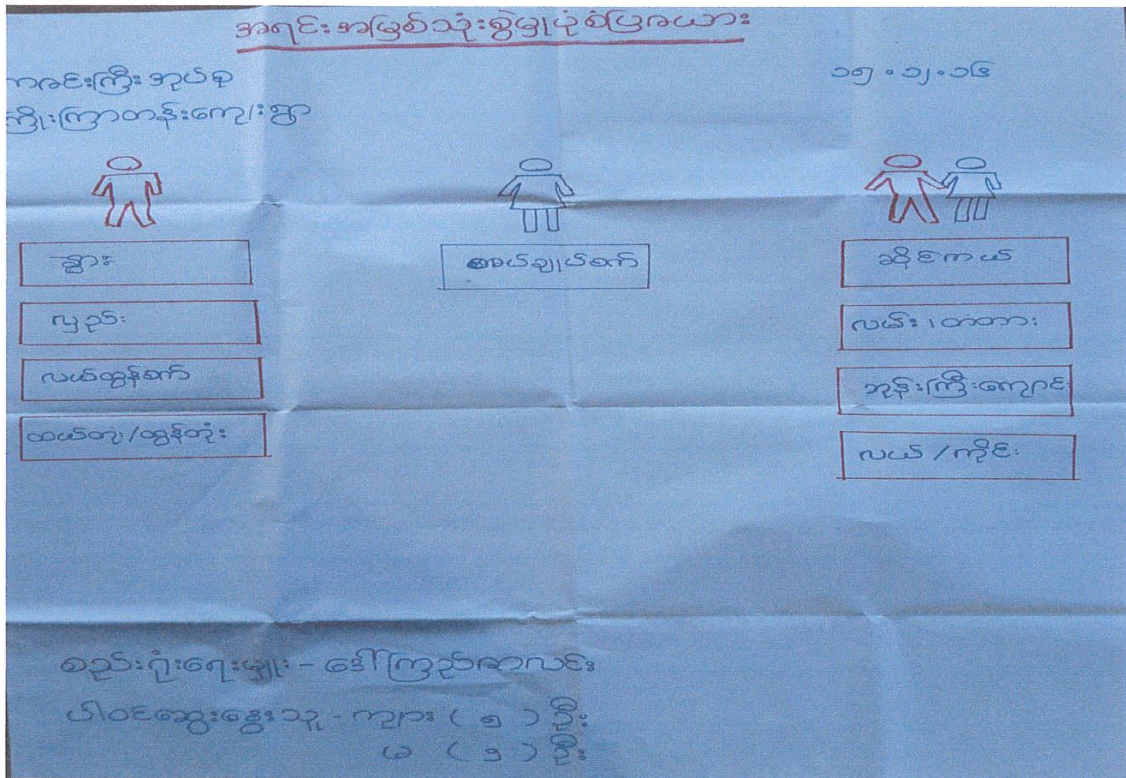 အရင်းအမြစ်သုံးစွဲမှုပုံစံပြဇယား
ကဇင်းကြီး အုပ်စု
ကြိုးကြာတန်းကျေးရွာ
၁၅.၁၂.၁၆
နွား
လှည်း
လယ်ထွန်စက်
ထယ်တုံး/ထွန်တုံး
အပ်ချုပ်စက်
ဆိုင်ကယ်
လမ်း၊တံတား
ဘုန်းကြီးကျောင်း
လယ်/ကိုင်း
စည်းရုံးရေးမှူး - ဒေါ်ကြည်
ပါဝင်ဆွေးနွေးသူ - ကျား ( ၅ ) ဦး
မ ( ၅ ) ဦး